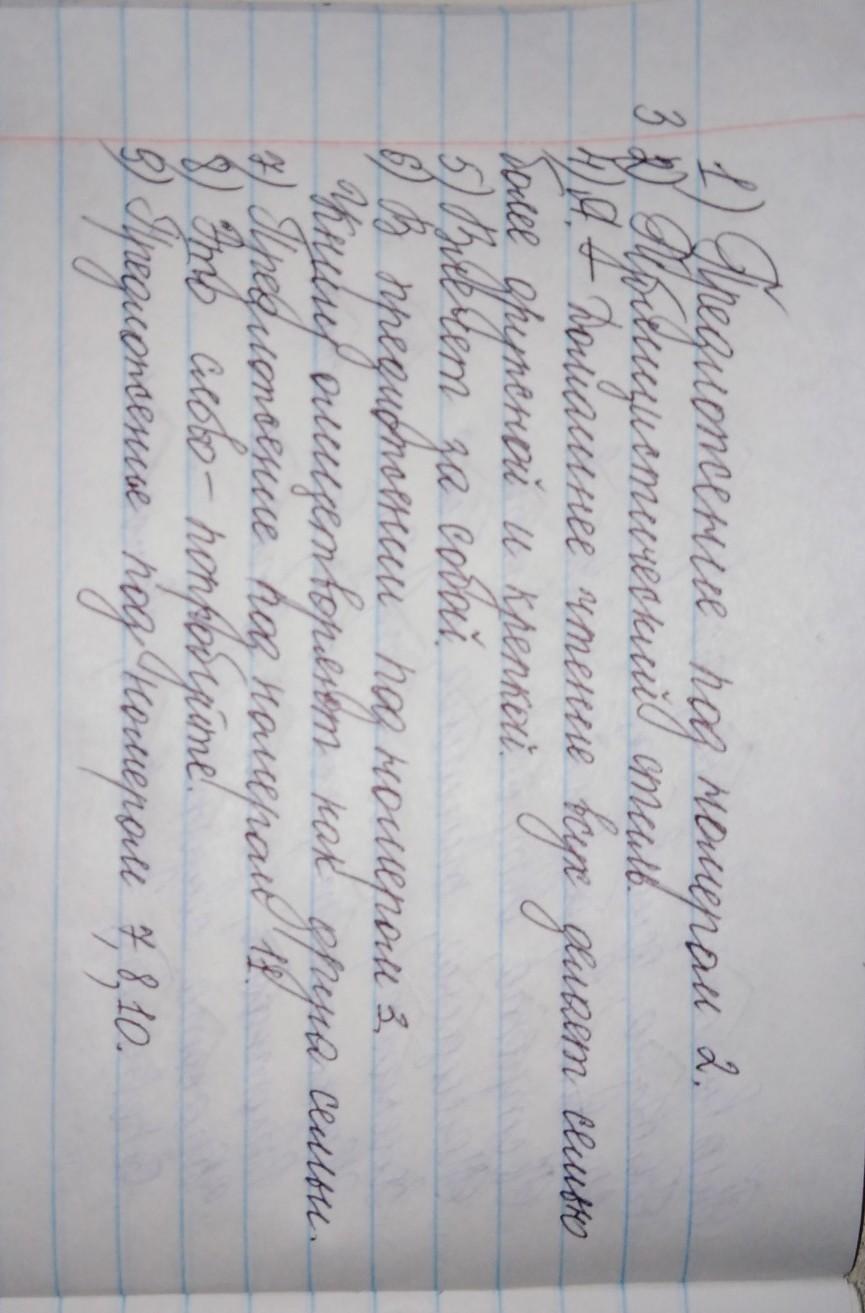 1) Предложение под номером 2.
3 2) Публицистический стиль.
4) Я. Домашнее чтение вслух делает семью
более дружной и крепкой.
5) Влечет за собой.
6) В предложении под номером 3.
Книгу олицетворяют как друга семьи.
7) Предложение под номером 12.
8) Это слово - попробуйте.
9) Предложение под номером 7, 8, 10.